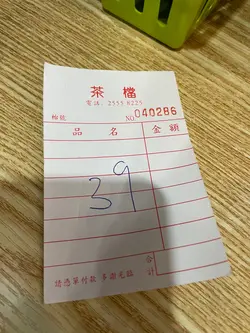 茶檔
電話: 2555 8225
檯號 NO.040286
品名 金額
39
合計
請憑單付款 多謝光臨